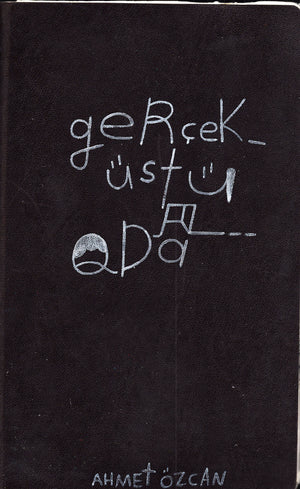 geRçeK_
üstü
ODa_--
AHMET ÖZCAN